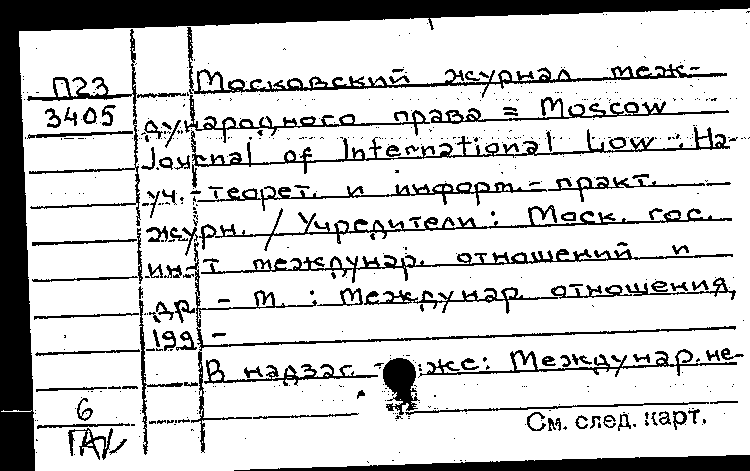 П23
3405
Московский журнал меж-
дународного права = Moscow
Journal of International Low : На-
уч.-теорет. и информ.-практ.
журн. / Учредители: Моск. гос.
ин-т междунар. отношений и
др - М. : Междунар. отношения,
199 -
В надзаг. же: Междунар. не-
6
См. след. карт.